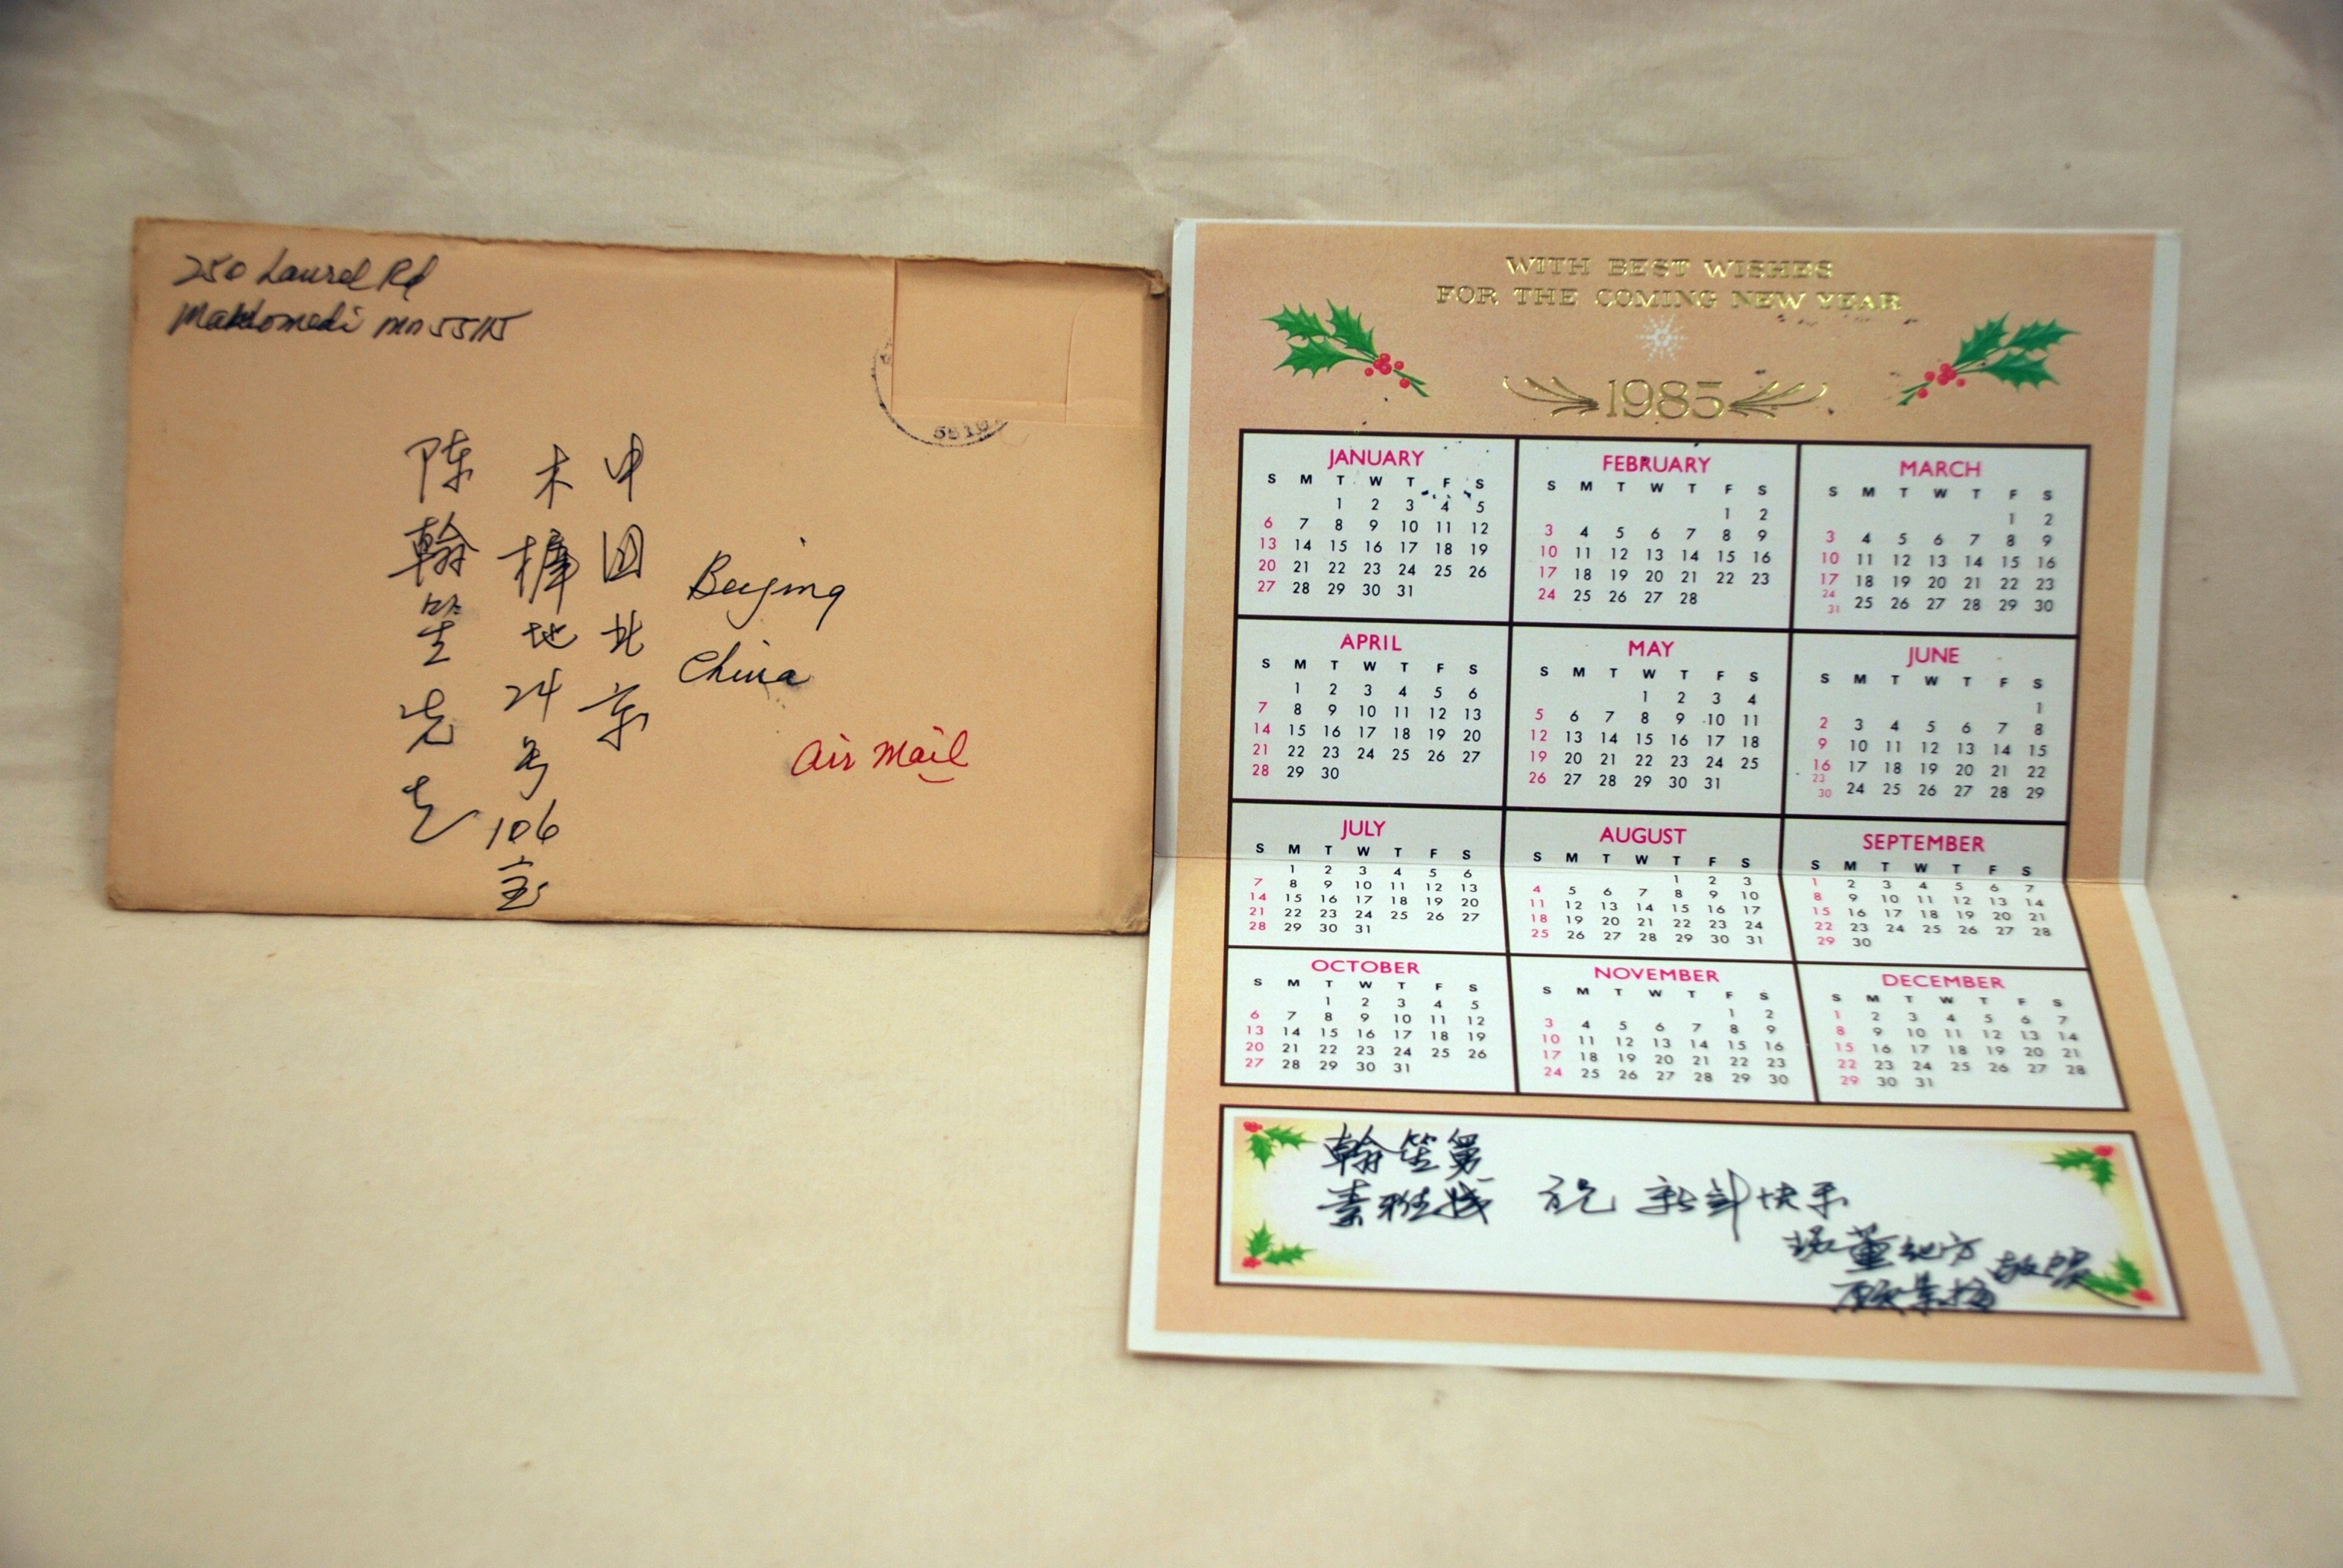 250 Laurel Rd
Mahtomedi MN 55115
中国北京
木樨地24号106室
陈翰笙先生
Beijing
China
Air Mail
5510
WITH BEST WISHES
FOR THE COMING NEW YEAR
1985
JANUARY
S M T W T F S
1 2 3 4 5
6 7 8 9 10 11 12
13 14 15 16 17 18 19
20 21 22 23 24 25 26
27 28 29 30 31
FEBRUARY
S M T W T F S
1 2
3 4 5 6 7 8 9
10 11 12 13 14 15 16
17 18 19 20 21 22 23
24 25 26 27 28
MARCH
S M T W T F S
1 2
3 4 5 6 7 8 9
10 11 12 13 14 15 16
17 18 19 20 21 22 23
24 31 25 26 27 28 29 30
APRIL
S M T W T F S
1 2 3 4 5 6
7 8 9 10 11 12 13
14 15 16 17 18 19 20
21 22 23 24 25 26 27
28 29 30
MAY
S M T W T F S
1 2 3 4
5 6 7 8 9 10 11
12 13 14 15 16 17 18
19 20 21 22 23 24 25
26 27 28 29 30 31
JUNE
S M T W T F S
1
2 3 4 5 6 7 8
9 10 11 12 13 14 15
16 17 18 19 20 21 22
23 30 24 25 26 27 28 29
JULY
S M T W T F S
1 2 3 4 5 6
7 8 9 10 11 12 13
14 15 16 17 18 19 20
21 22 23 24 25 26 27
28 29 30 31
AUGUST
S M T W T F S
1 2 3
4 5 6 7 8 9 10
11 12 13 14 15 16 17
18 19 20 21 22 23 24
25 26 27 28 29 30 31
SEPTEMBER
S M T W T F S
1 2 3 4 5 6 7
8 9 10 11 12 13 14
15 16 17 18 19 20 21
22 23 24 25 26 27 28
29 30
OCTOBER
S M T W T F S
1 2 3 4 5
6 7 8 9 10 11 12
13 14 15 16 17 18 19
20 21 22 23 24 25 26
27 28 29 30 31
NOVEMBER
S M T W T F S
1 2
3 4 5 6 7 8 9
10 11 12 13 14 15 16
17 18 19 20 21 22 23
24 25 26 27 28 29 30
DECEMBER
S M T W T F S
1 2 3 4 5 6 7
8 9 10 11 12 13 14
15 16 17 18 19 20 21
22 23 24 25 26 27 28
29 30 31
翰笙
祝 新年快乐
敬贺